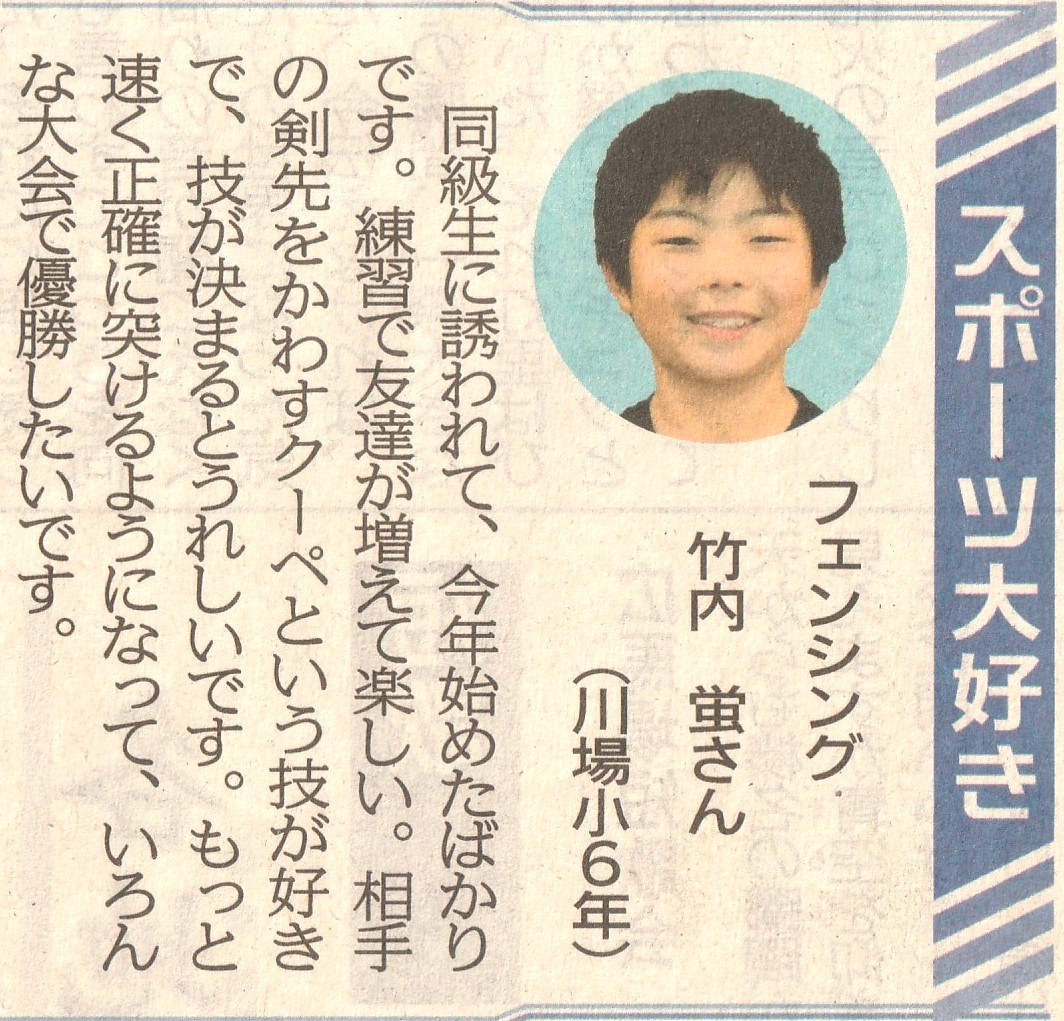 スポーツ大好き
フェンシング
竹内 蛍さん
(川場小6年)
同級生に誘われて、今年始めたばかり
です。練習で友達が増えて楽しい。相手
の剣先をかわすクーペという技が好き
で、技が決まるとうれしいです。もっと
速く正確に突けるようになって、いろん
な大会で優勝したいです。